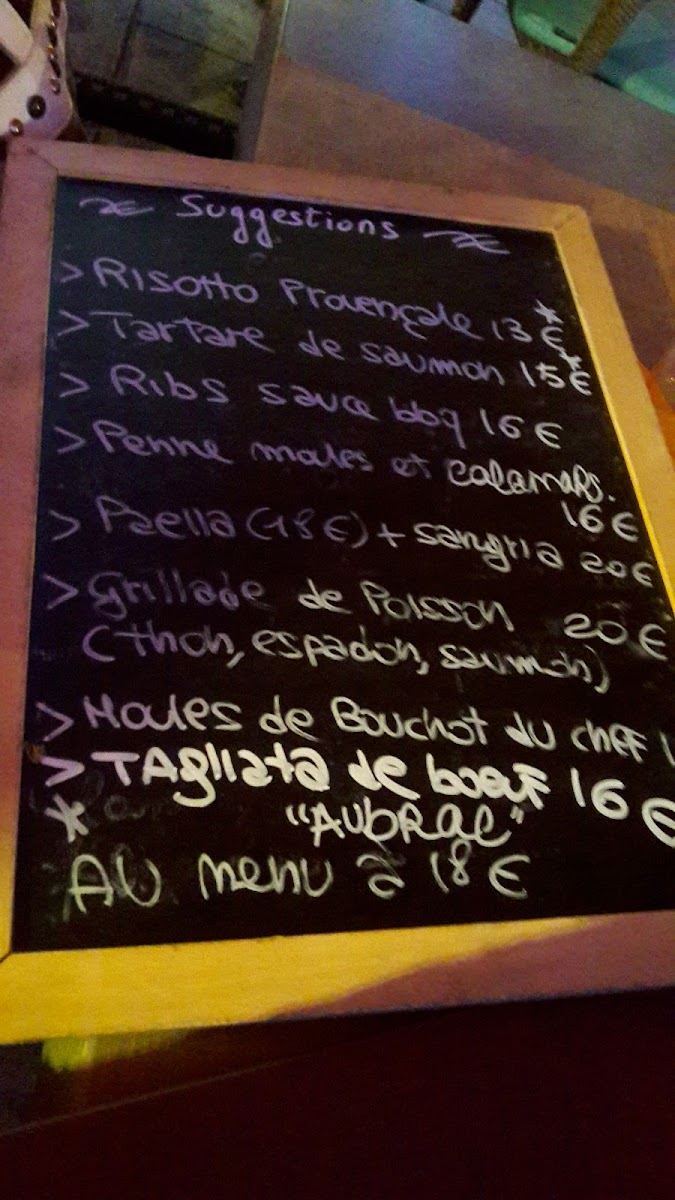 Suggestions
> Risotto Provençale 13 €*
> Tartare de saumon 15 €*
> Ribs sauce bbq 16 €
> Penne moules et calamars.
16 €
> Paella (18 €) + sangria 20 €
> Grillade de Poisson 20 €
(thon, espadon, saumon)
> Moules de Bouchot du chef 1
> TAgliata de boeuf 16 €
* "AUbRac"
AU menu à 18 €